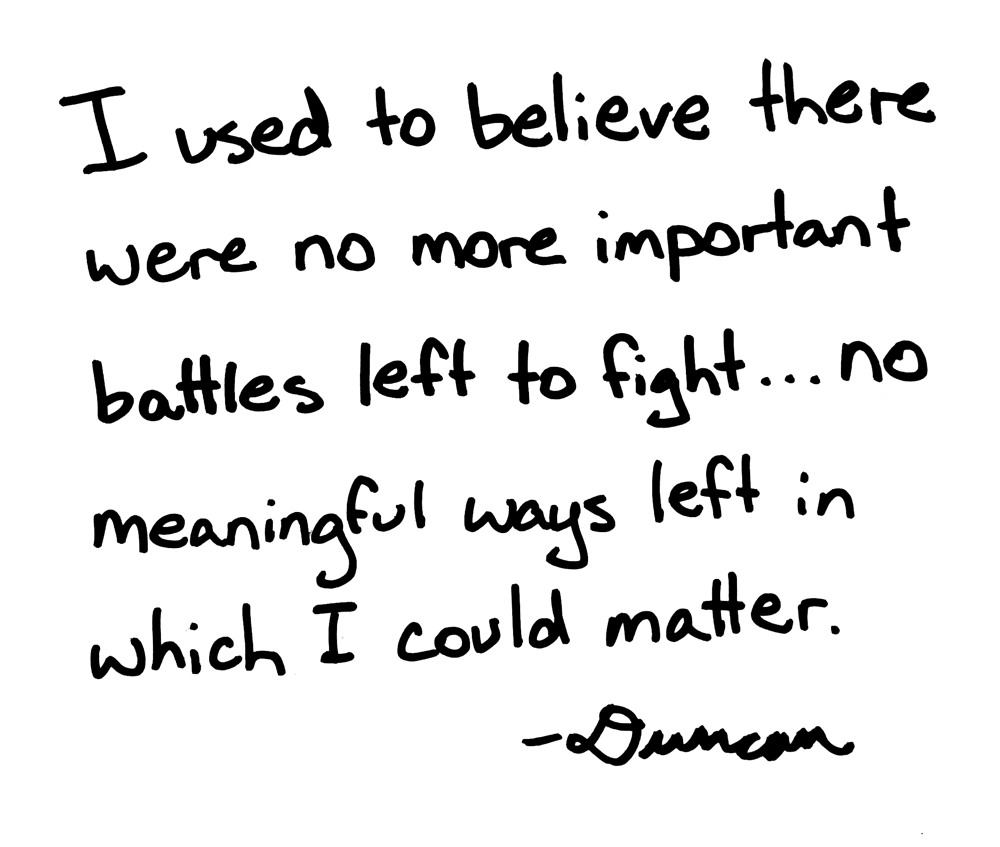 I used to believe there
were no more important
battles left to fight...no
meaningful ways left in
which I could matter.
-Duncan